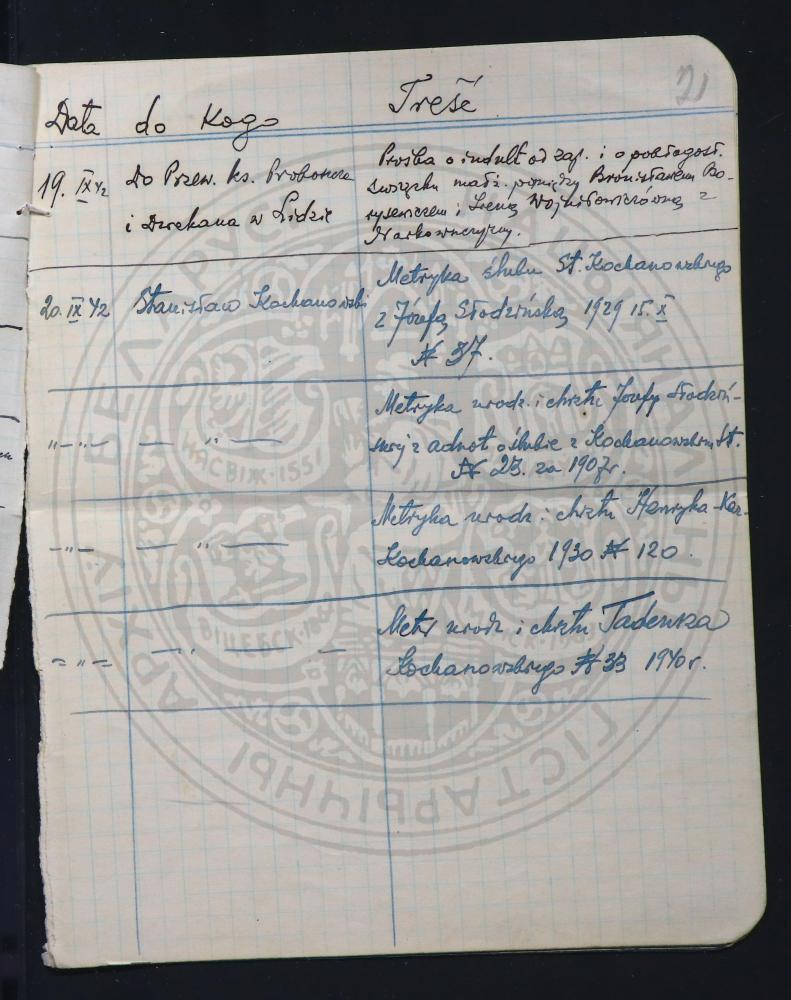 21
Data do Kogo Treść
19. IX 42 Do Przew. ks. Proboszcza
i Dziekana w Lidzie
Prośba o indult od zap. i o pobłogosł.
związku małż. pomiędzy Bronisławem Bo-
rysewiczem i Ireną Wojniłowiczówną z
20. IX 42 Stanisław Kochanowski
Metryka ślubu St. Kochanowskiego
z Józefą Słodzińską 1929 15. X
№ 37.
" — " —
Metryka urodz. i chrztu Józefy Słodziń-
skiej z adnot. o ślubie z Kochanowskim St.
№ 23. za 1907 r.
— " — — " —
Metryka urodz. i chrztu Henryka
Kochanowskiego 1930 № 120.
— " — — " — —
Metr. urodz. i chrztu Tadeusza
Kochanowskiego № 33 1940 r.
АРХІЎ БЕЛАРУСІ
НЯСВІЖ·1551
ВІЦЕБСК
ГІСТАРЫЧНЫ